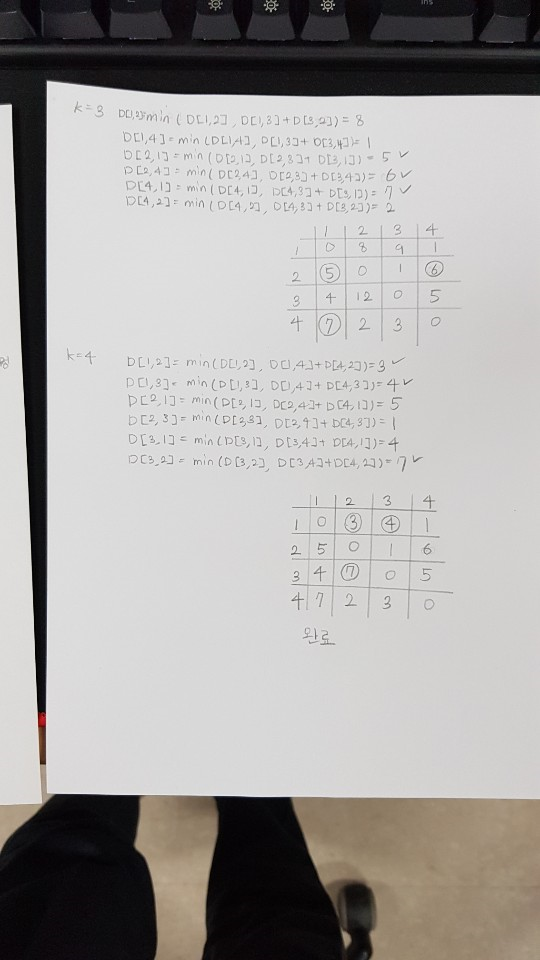 ins
k=3 D[1,2]=min ( D[1,2] , D[1,3]+D[3,2]) = 8
D[1,4] = min (D[1,4], D[1,3]+ D[3,4])= 1
D[2,1] = min ( D[2,1], D[2,3]+ D[3,1]) = 5 ✓
D[2,4] = min ( D[2,4], D[2,3]+D[3,4]) = 6 ✓
D[4,1] = min ( D[4,1], D[4,3]+ D[3,1]) = 7 ✓
D[4,2] = min ( D[4,2], D[4,3]+D[3,2]) = 2
1 2 3 4
1 0 8 9 1
2 5 0 1 6
3 4 12 0 5
4 7 2 3 0
k=4 D[1,2] = min(D[1,2], D[1,4]+D[4,2])=3 ✓
D[1,3] = min(D[1,3], D[1,4]+D[4,3])=4 ✓
D[2,1] = min(D[2,1], D[2,4]+ D[4,1]) = 5
D[2,3] = min(D[2,3], D[2,4]+D[4,3])= 1
D[3,1] = min(D[3,1], D[3,4]+ D[4,1])=4
D[3,2] = min(D[3,2], D[3,4]+D[4,2])=7 ✓
1 2 3 4
1 0 3 4 1
2 5 0 1 6
3 4 7 0 5
4 7 2 3 0
완료